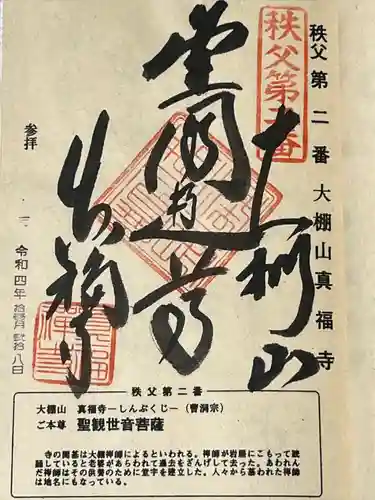 秩父第二番 大棚山真福寺
秩父第二番
大棚山
真福寺
参拝
令和四年 拾壱月 弐拾八日
秩父第二番
大棚山 真福寺ーしんぷくじー(曹洞宗)
ご本尊 聖観世音菩薩
寺の開基は大棚禅師によるといわれる。禅師が岩屋にこもって読
誦していると老婆があらわれて過去をざんげして去った。あわれん
だ禅師はその供養のために堂宇を建立した。人々から慕われた禅師
は地名にもなっている。